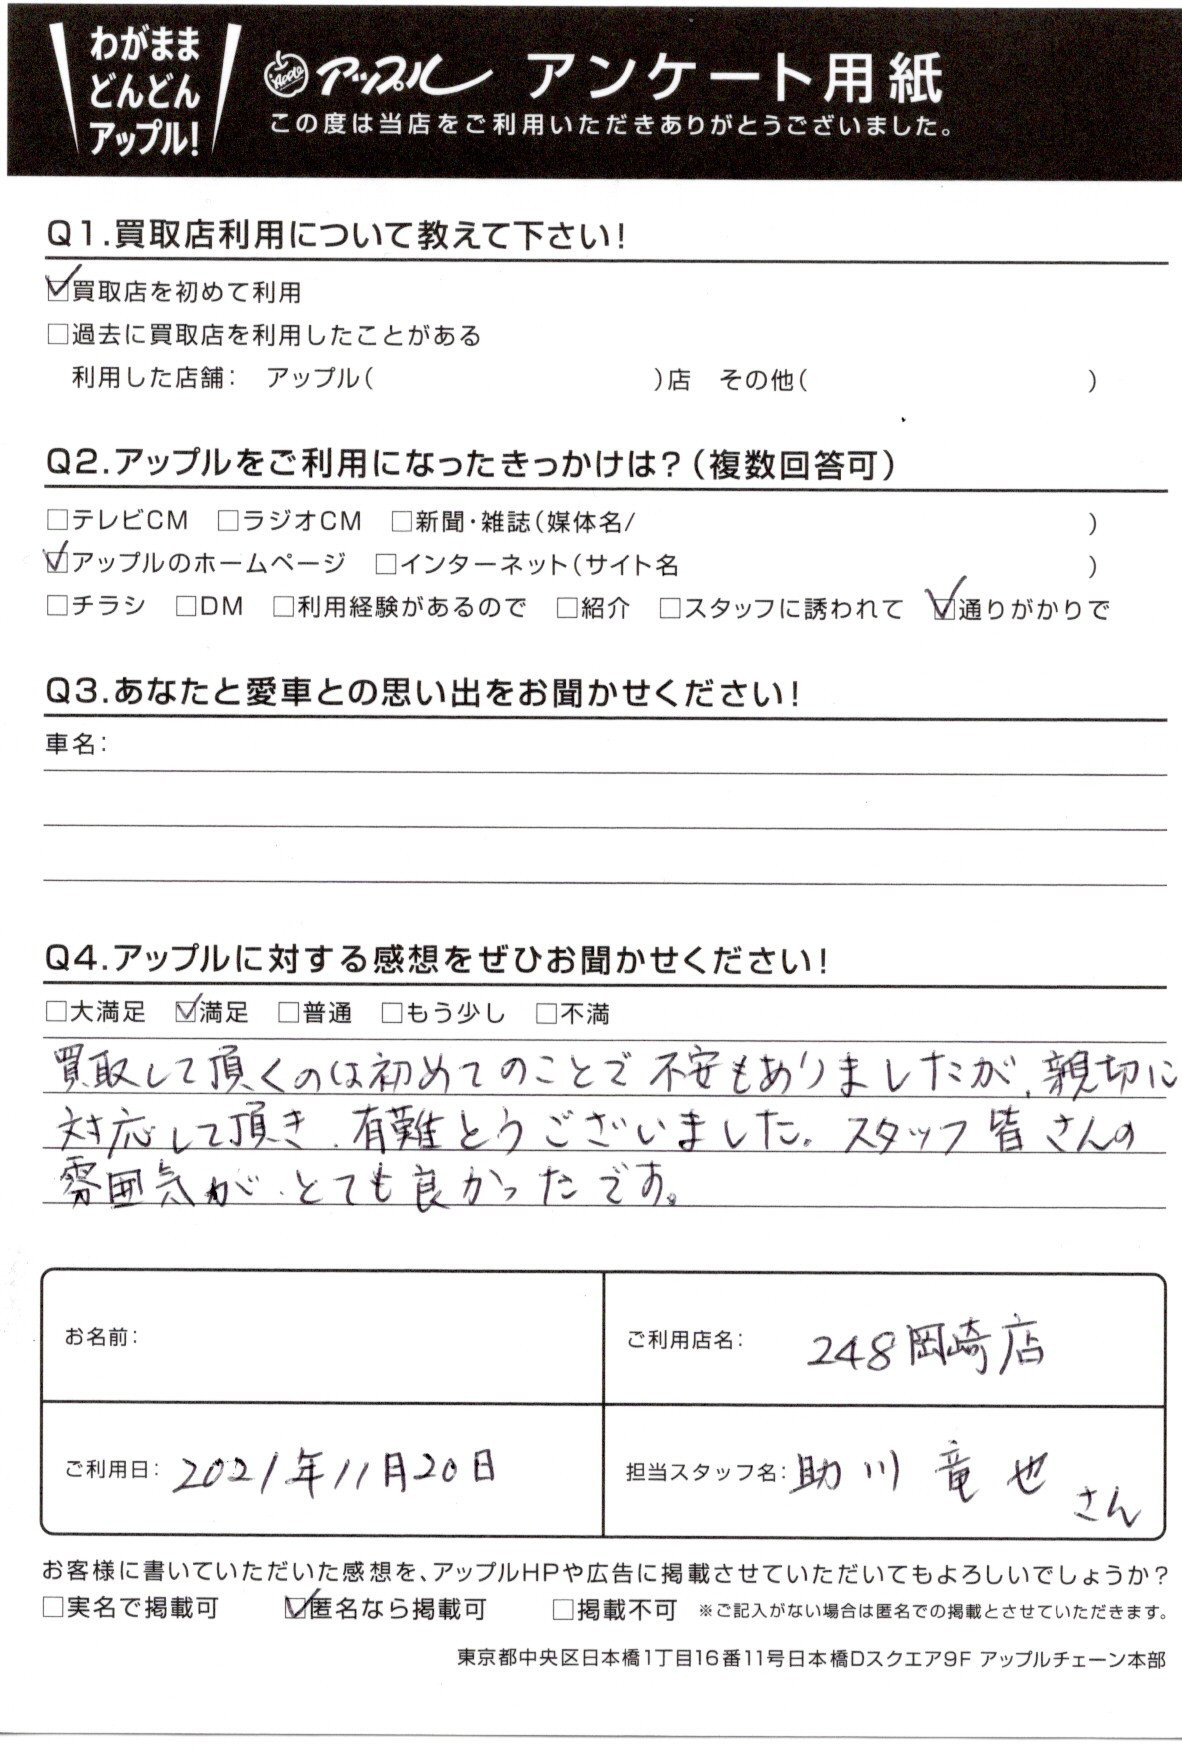 わがまま
どんどん
アップル!
Apple アップル アンケート用紙
この度は当店をご利用いただきありがとうございました。
Q1.買取店利用について教えて下さい!
☑買取店を初めて利用
□過去に買取店を利用したことがある
利用した店舗: アップル( )店 その他( )
Q2.アップルをご利用になったきっかけは?(複数回答可)
□テレビCM □ラジオCM □新聞・雑誌(媒体名/ )
☑アップルのホームページ □インターネット(サイト名 )
□チラシ □DM □利用経験があるので □紹介 □スタッフに誘われて ☑通りがかりで
Q3.あなたと愛車との思い出をお聞かせください!
車名:
Q4.アップルに対する感想をぜひお聞かせください!
□大満足 ☑満足 □普通 □もう少し □不満
買取して頂くのは初めてのことで不安もありましたが、親切に
対応して頂き、有難とうございました。スタッフ皆さんの
雰囲気が、とても良かったです。
お名前:
ご利用店名: 248岡崎店
ご利用日: 2021年11月20日
担当スタッフ名: 助川 竜也
さん
お客様に書いていただいた感想を、アップルHPや広告に掲載させていただいてもよろしいでしょうか?
□実名で掲載可 ☑匿名なら掲載可 □掲載不可 ※ご記入がない場合は匿名での掲載とさせていただきます。
東京都中央区日本橋1丁目16番11号日本橋Dスクエア9F アップルチェーン本部